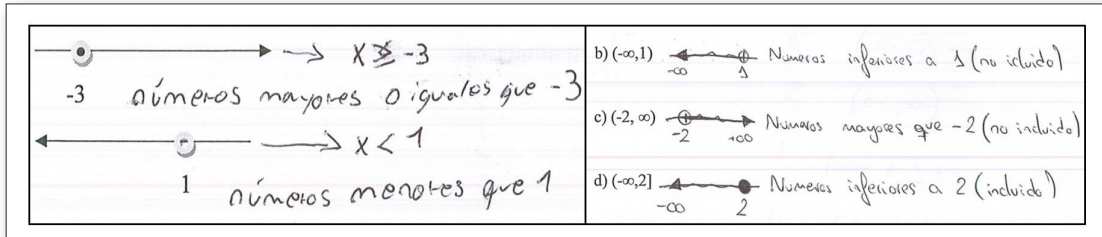 → x ≥ -3
-3 números mayores o iguales que -3
→ x < 1
1
números menores que 1
b) (-∞,1) Numeros inferiores a 1 (no icluido)
-∞ 1
c) (-2, ∞) Numeros mayores que -2 (no incluido)
-2 +∞
d) (-∞,2] Numeros inferiores a 2 (incluido)
-∞ 2